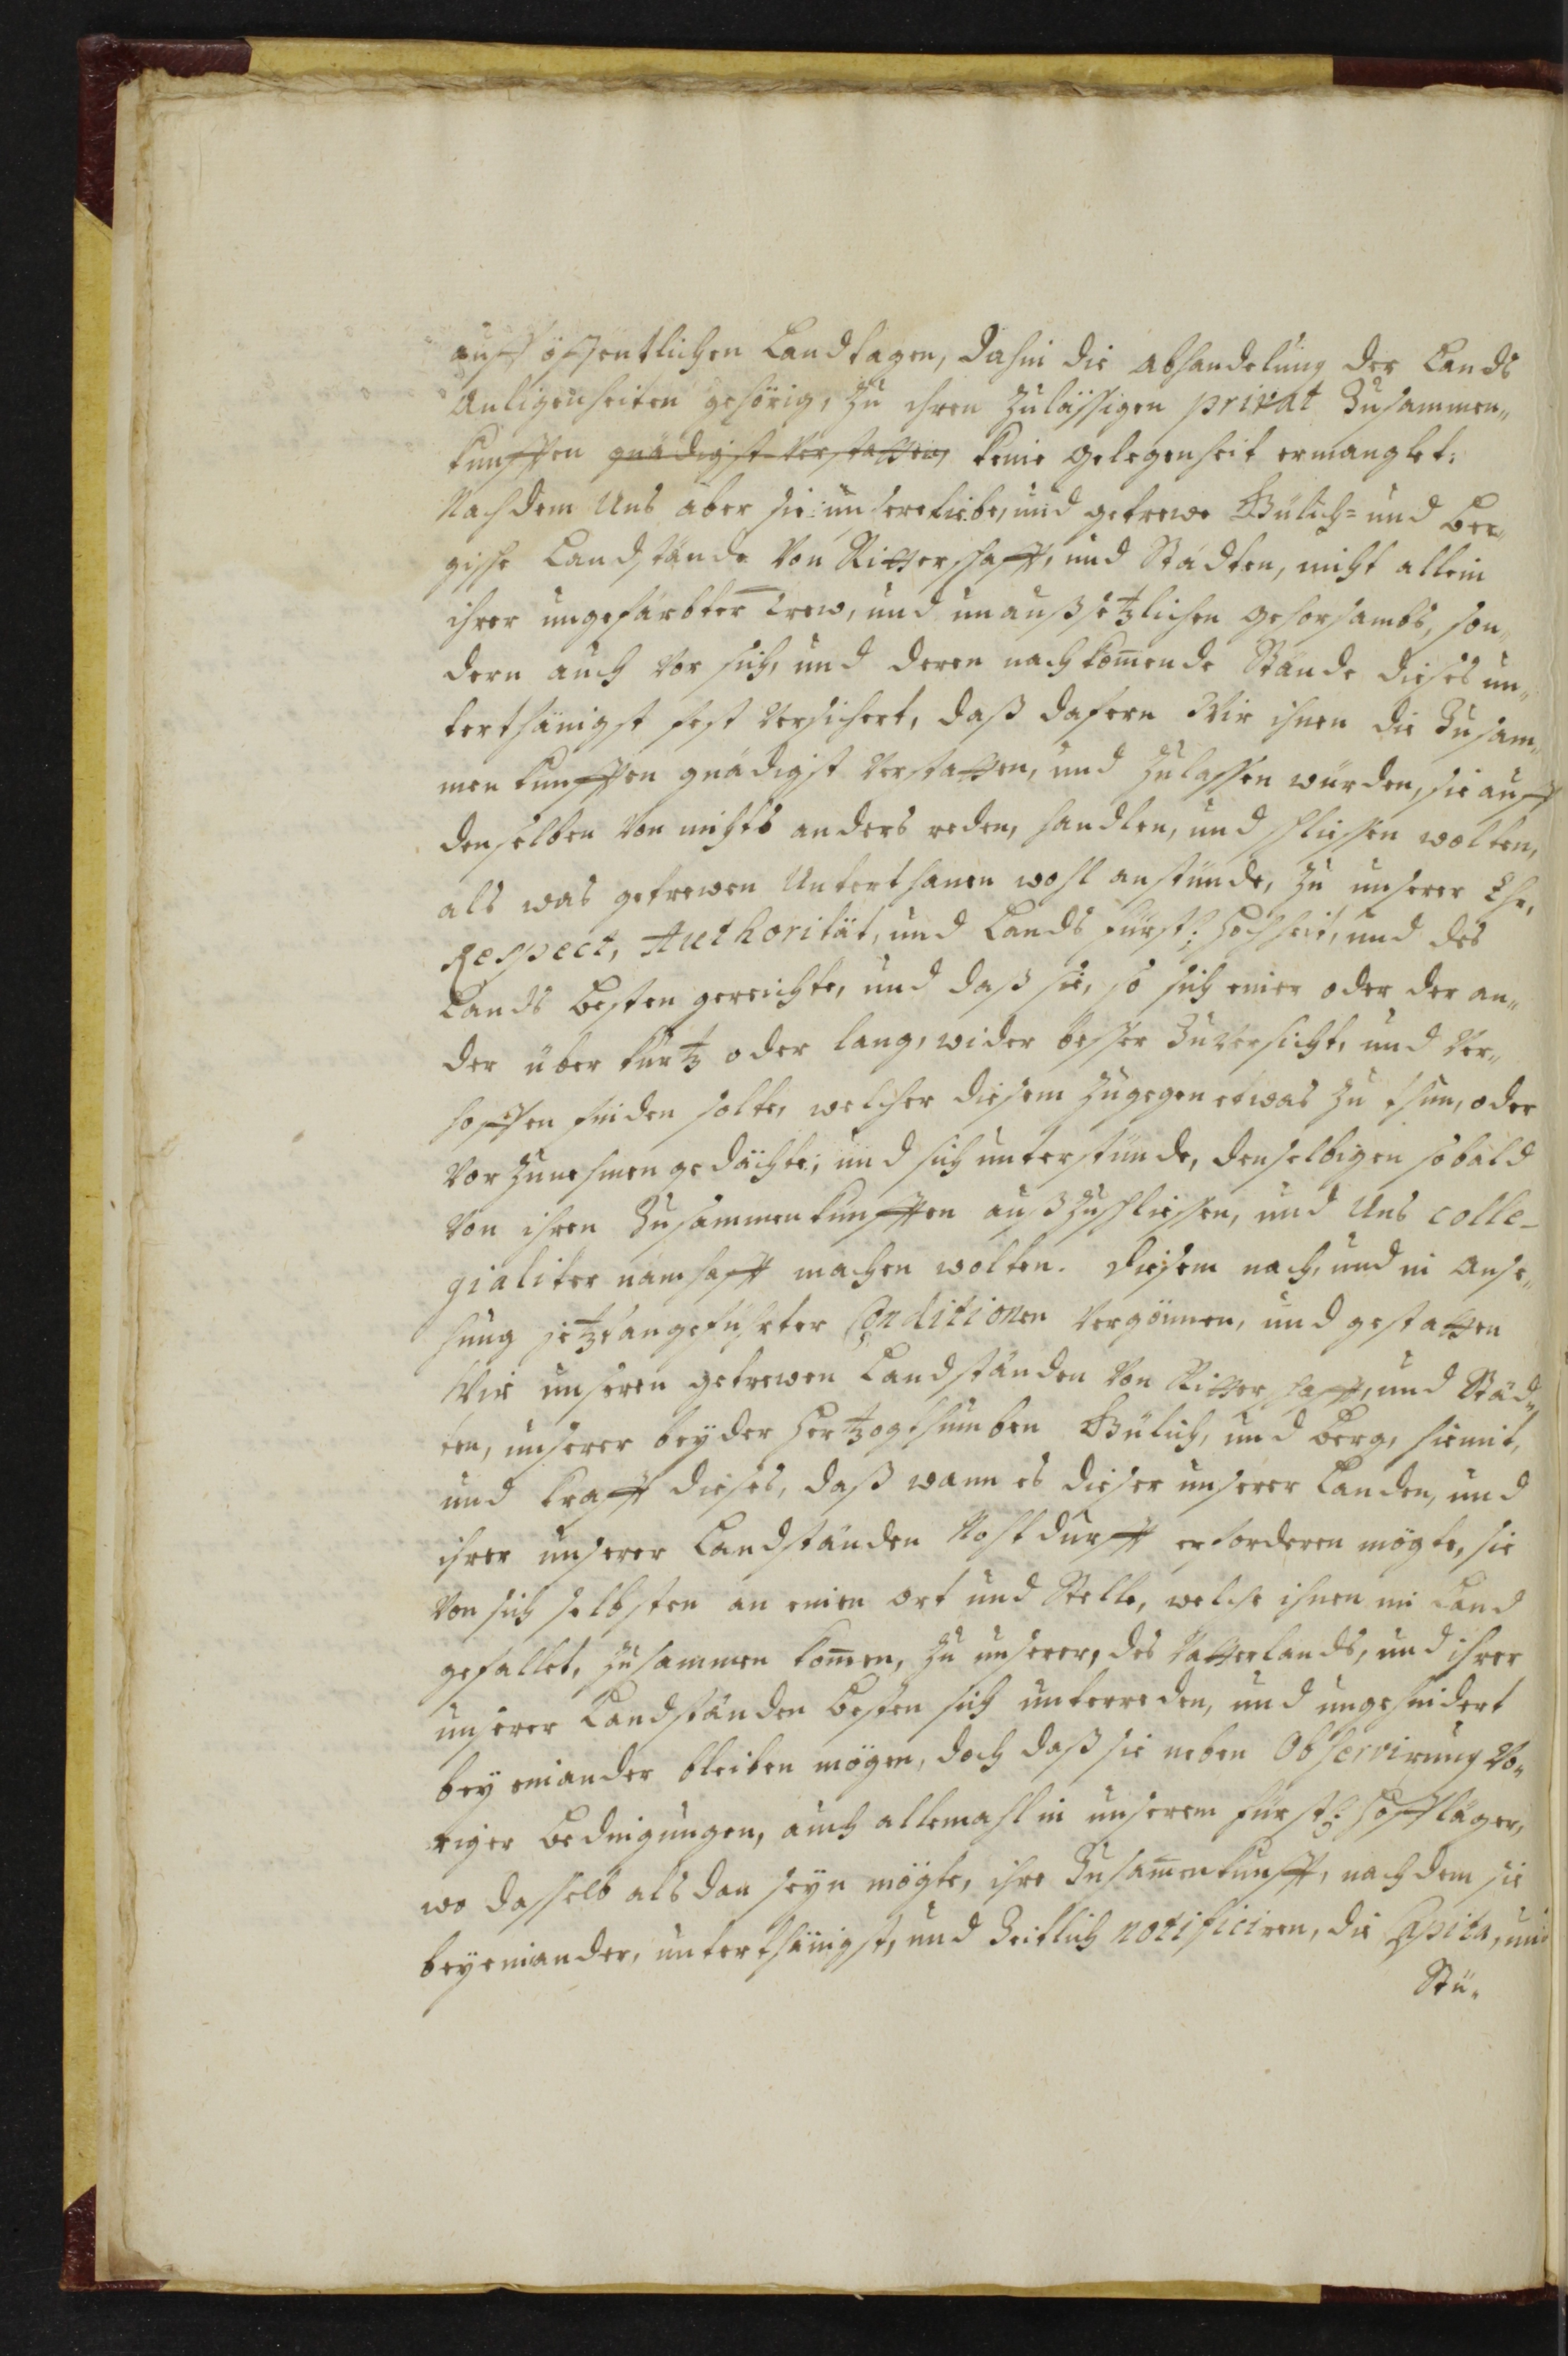 auff öffentlichen Landtagen, dahin die abhandelung der Lands
Anligenheiten gehörig, zu ihren zulässigen privat Zusammen„
kunfften gnädigst verstatten, keine gelegenheit ermanglet:
Nachdem Uns aber sie unsere liebe, und getrewe Gülich= und Ber„
gische Landstände von Ritterschafft, und Städten, nicht allein
ihrer ungefärbter Trew, und unaußsetzlichen gehorsambs, son„
dern auch vor sich, und deren nachkom̄ende Stände dieses un„
terthänigst fest versichert, daß dafern Wir ihnen die Zusam„
menkunfften gnädigst verstatten, und zulassen würden, sie auff
denselben von nichts anders reden, handlen, und schliessen wolten,
als was getrewen Unterthanen wohl anstünde, zu unserer Ehr,
Respect, Authorität, und Lands fürstl: Hochheit, und des
Lands Besten gereichte, und daß sie, so sich einer oder der an„
der über kurtz oder lang, wider besser Zuversicht, und ver„
hoffen finden solte, welcher diesem zugegen etwas zu thun, oder
vorzunehmen gedächte, und sich unterstünde, denselbigen sobald
von ihren Zusammenkunfften außzuschliessen, und Uns colle-
gialiter namhafft machen wolten. Diesem nach, und in Anse„
hung jetztangeführter Conditionen vergönnen, und gestatten
Wir unseren getrewen Landständen von Ritterschafft, und Städ„
ten, unserer beÿder Hertzogthumben Gülich, und Berg, hiemit,
und krafft dieses, daß wann es dieser unserer Landen, und
ihrer unserer Landständen Nohtdurfft erforderen mögte, sie
von sich selbsten an einen ort und Stelle, welche ihnen im Land
gefallet, zusammen kom̄en, zu unserer, des Vatterlands, und ihrer
unserer Landständen Besten sich unterreden, und ungehindert
beÿ einander bleiben mögen, doch daß sie neben Observirung vo„
riger Bedingungen, auch allemahl in unserem fürstl: Hofflager,
wo dasselb alsdan seÿn mögte, ihre Zusam̄enkunfft, nachdem sie
beÿeinander, unterthänigst, und Zeitlich notificiren, die Capita, und
Stü„